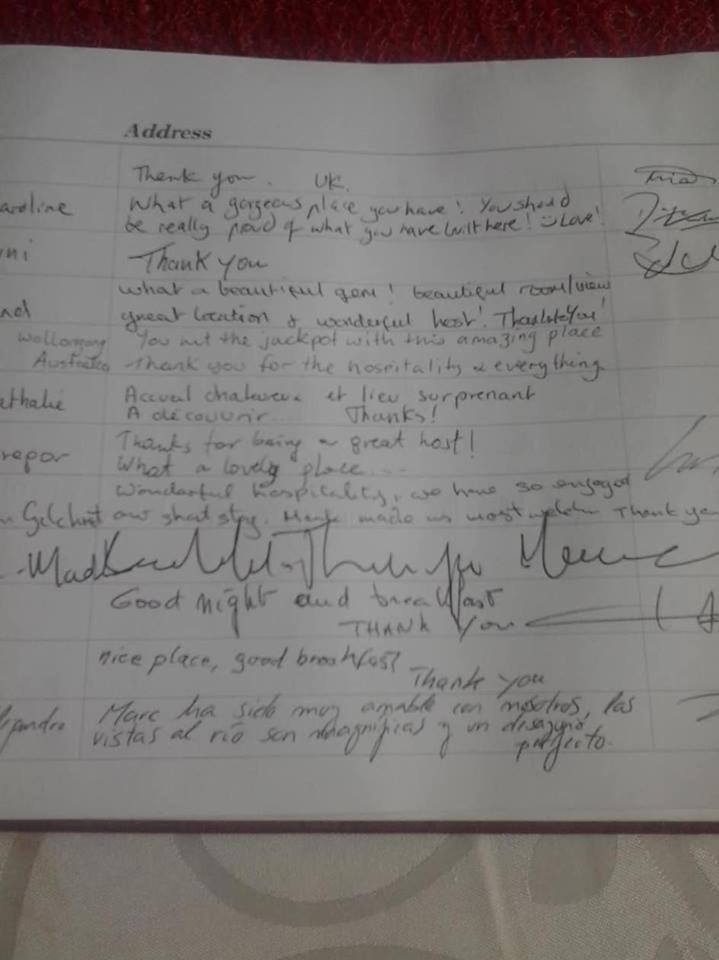 Address
Thank you. UK.
aroline What a gorgeous place you have! You should
be really proud of what you have built here! Love!
ni Thank you
What a beautiful gem! beautiful room/view
nd great location & wonderful host! Thank You!
Wollongong You hit the jackpot with this amazing place
Australia Thank you for the hospitality & everything
athalie Accueil chaleureux et lieu surprenant
A découvrir... Thanks!
Thanks for being a great host!
repor What a lovely place...
Wonderful hospitality, we have so enjoyed
our short stay. Marc made us most welcome Thank you
Good night and breakfast
THANK You
nice place, good breakfast
Thank you
lejandro Marc ha sido muy amable con nosotros, las
vistas al río son magníficas y un desayuno
perfecto.